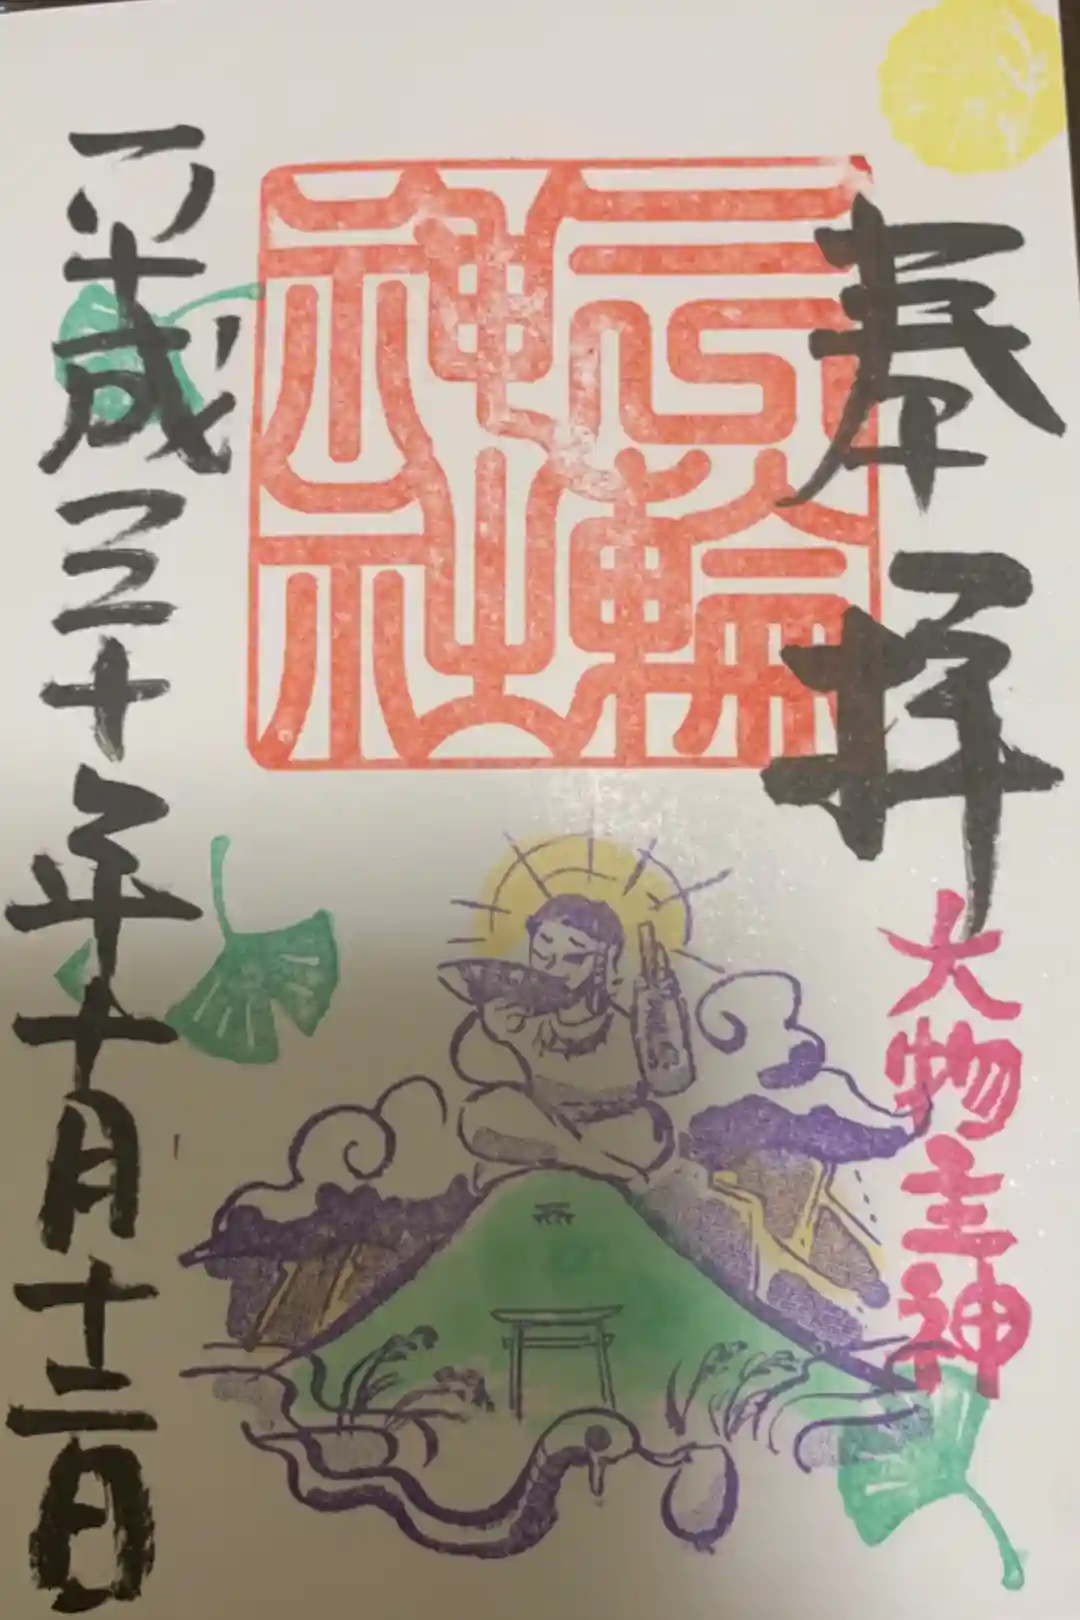 奉拝
大物主神
三輪
神社
平成三十年十月十二日